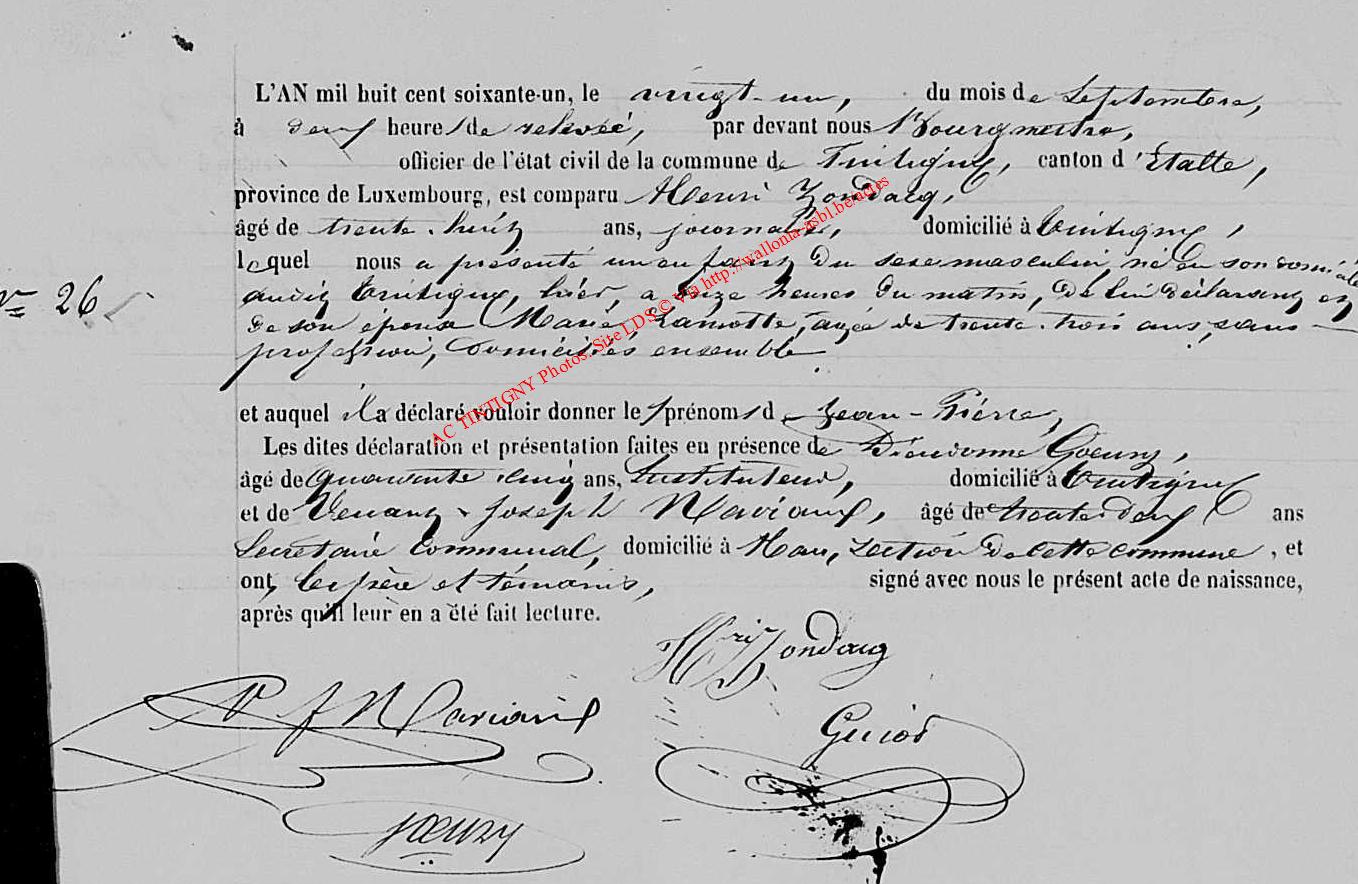 L'AN mil huit cent soixante-un, le vingt-un, du mois de Septembre,
à deux heures de relevée, par devant nous Bourgmestre,
officier de l'état civil de la commune de Tintigny, canton d'Etalle,
province de Luxembourg, est comparu Henri Zondacq,
âgé de trente-huit ans, journalier, domicilié à Tintigny,
lequel nous a présenté un enfant du sexe masculin, né en son domicile
audit Tintigny, hier, à onze heures du matin, de lui déclarant et
de son épouse Marie Lamotte, âgée de trente-trois ans, sans
profession, domiciliés ensemble.
N° 26
et auquel il a déclaré vouloir donner les prénoms de Jean-Pierre,
Les dites déclaration et présentation faites en présence de Dieudonné Goeury,
âgé de quarante cinq ans, Instituteur, domicilié à Tintigny
et de Venant-Joseph, âgé de trente-deux ans
Secrétaire communal, domicilié à Han, section de cette commune, et
ont, le père et témoins, signé avec nous le présent acte de naissance,
après qu'il leur en a été fait lecture.
Hri Zondacq
V. J.
Guiot
Goeury
AC TINTIGNY Photos. Site LDS © via http://wallonia-asbl.be/actes